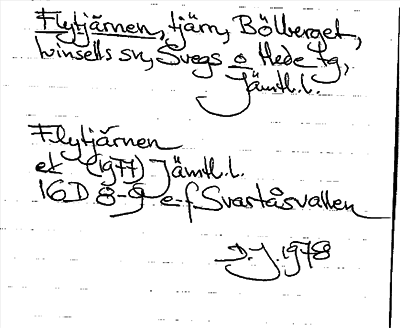 Flytjärnen, tjärn, Bölberget,
Linsells sn, Svegs o Hede tg,
Jämtl.l.
Flytjärnen
ek (1977) Jämtl.l.
16D 8-9 e-f Svartåsvallen
D.J. 1978